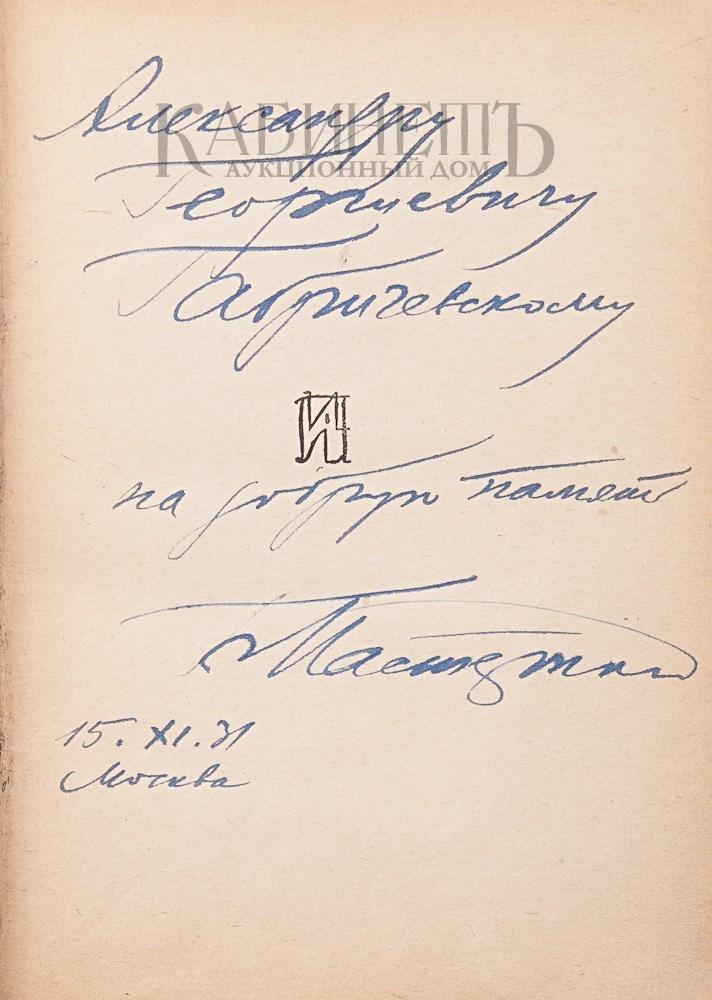 КАБИНЕТЪ
АУКЦИОННЫЙ ДОМ
Александру
Георгиевичу
Габричевскому
на добрую память
15. XI. 31
Москва